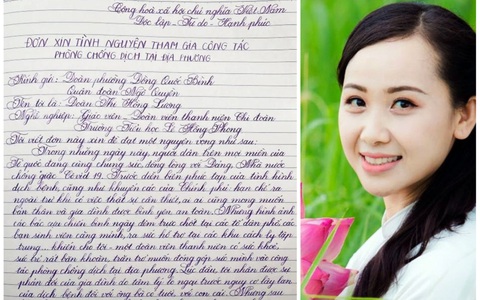 Cộng hoà xã hội chủ nghĩa Việt Nam
Độc lập - Tự do - Hạnh phúc
ĐƠN XIN TÌNH NGUYỆN THAM GIA CÔNG TÁC
PHÒNG CHỐNG DỊCH TẠI ĐỊA PHƯƠNG
Kính gửi: Đoàn phường Đông Quốc Bình
Quận đoàn Ngô Quyền
Tên tôi là: Đoàn Thị Hồng Lương
Nghề nghiệp: Giáo viên - Đoàn viên thanh niên Chi đoàn
Trường Tiểu học Lê Hồng Phong
Tôi viết đơn này xin đề đạt một nguyện vọng như sau:
Trong những ngày này, người dân trên mọi miền của
Tổ quốc đang cùng chung sức đồng lòng với Đảng, Nhà nước
chống giặc Covid 19. Trước diễn biến phức tạp của tình hình
dịch bệnh, cũng như khuyến cáo của Chính phủ hạn chế ra
ngoài trừ khi có việc thật sự cần thiết, ai ai cũng mong muốn
bản thân và gia đình được bình yên an toàn. Những hình ảnh
các bác cựu chiến binh ngày đêm trực chốt tại các tổ dân phố, các
bạn sinh viên căng mình, ra sức hỗ trợ tại các khu cách ly tập
trung... khiến cho tôi - một đoàn viên thanh niên có sức khoẻ,
sức trẻ rất băn khoăn, trăn trở muốn đóng góp sức mình vào công
tác phòng chống dịch tại địa phương. Lúc đầu tôi nhận được sự
phản đối của gia đình do tâm lý lo ngại trước nguy cơ lây lan
của dịch bệnh đối với ông bà có tuổi với con cái. Nhưng sau